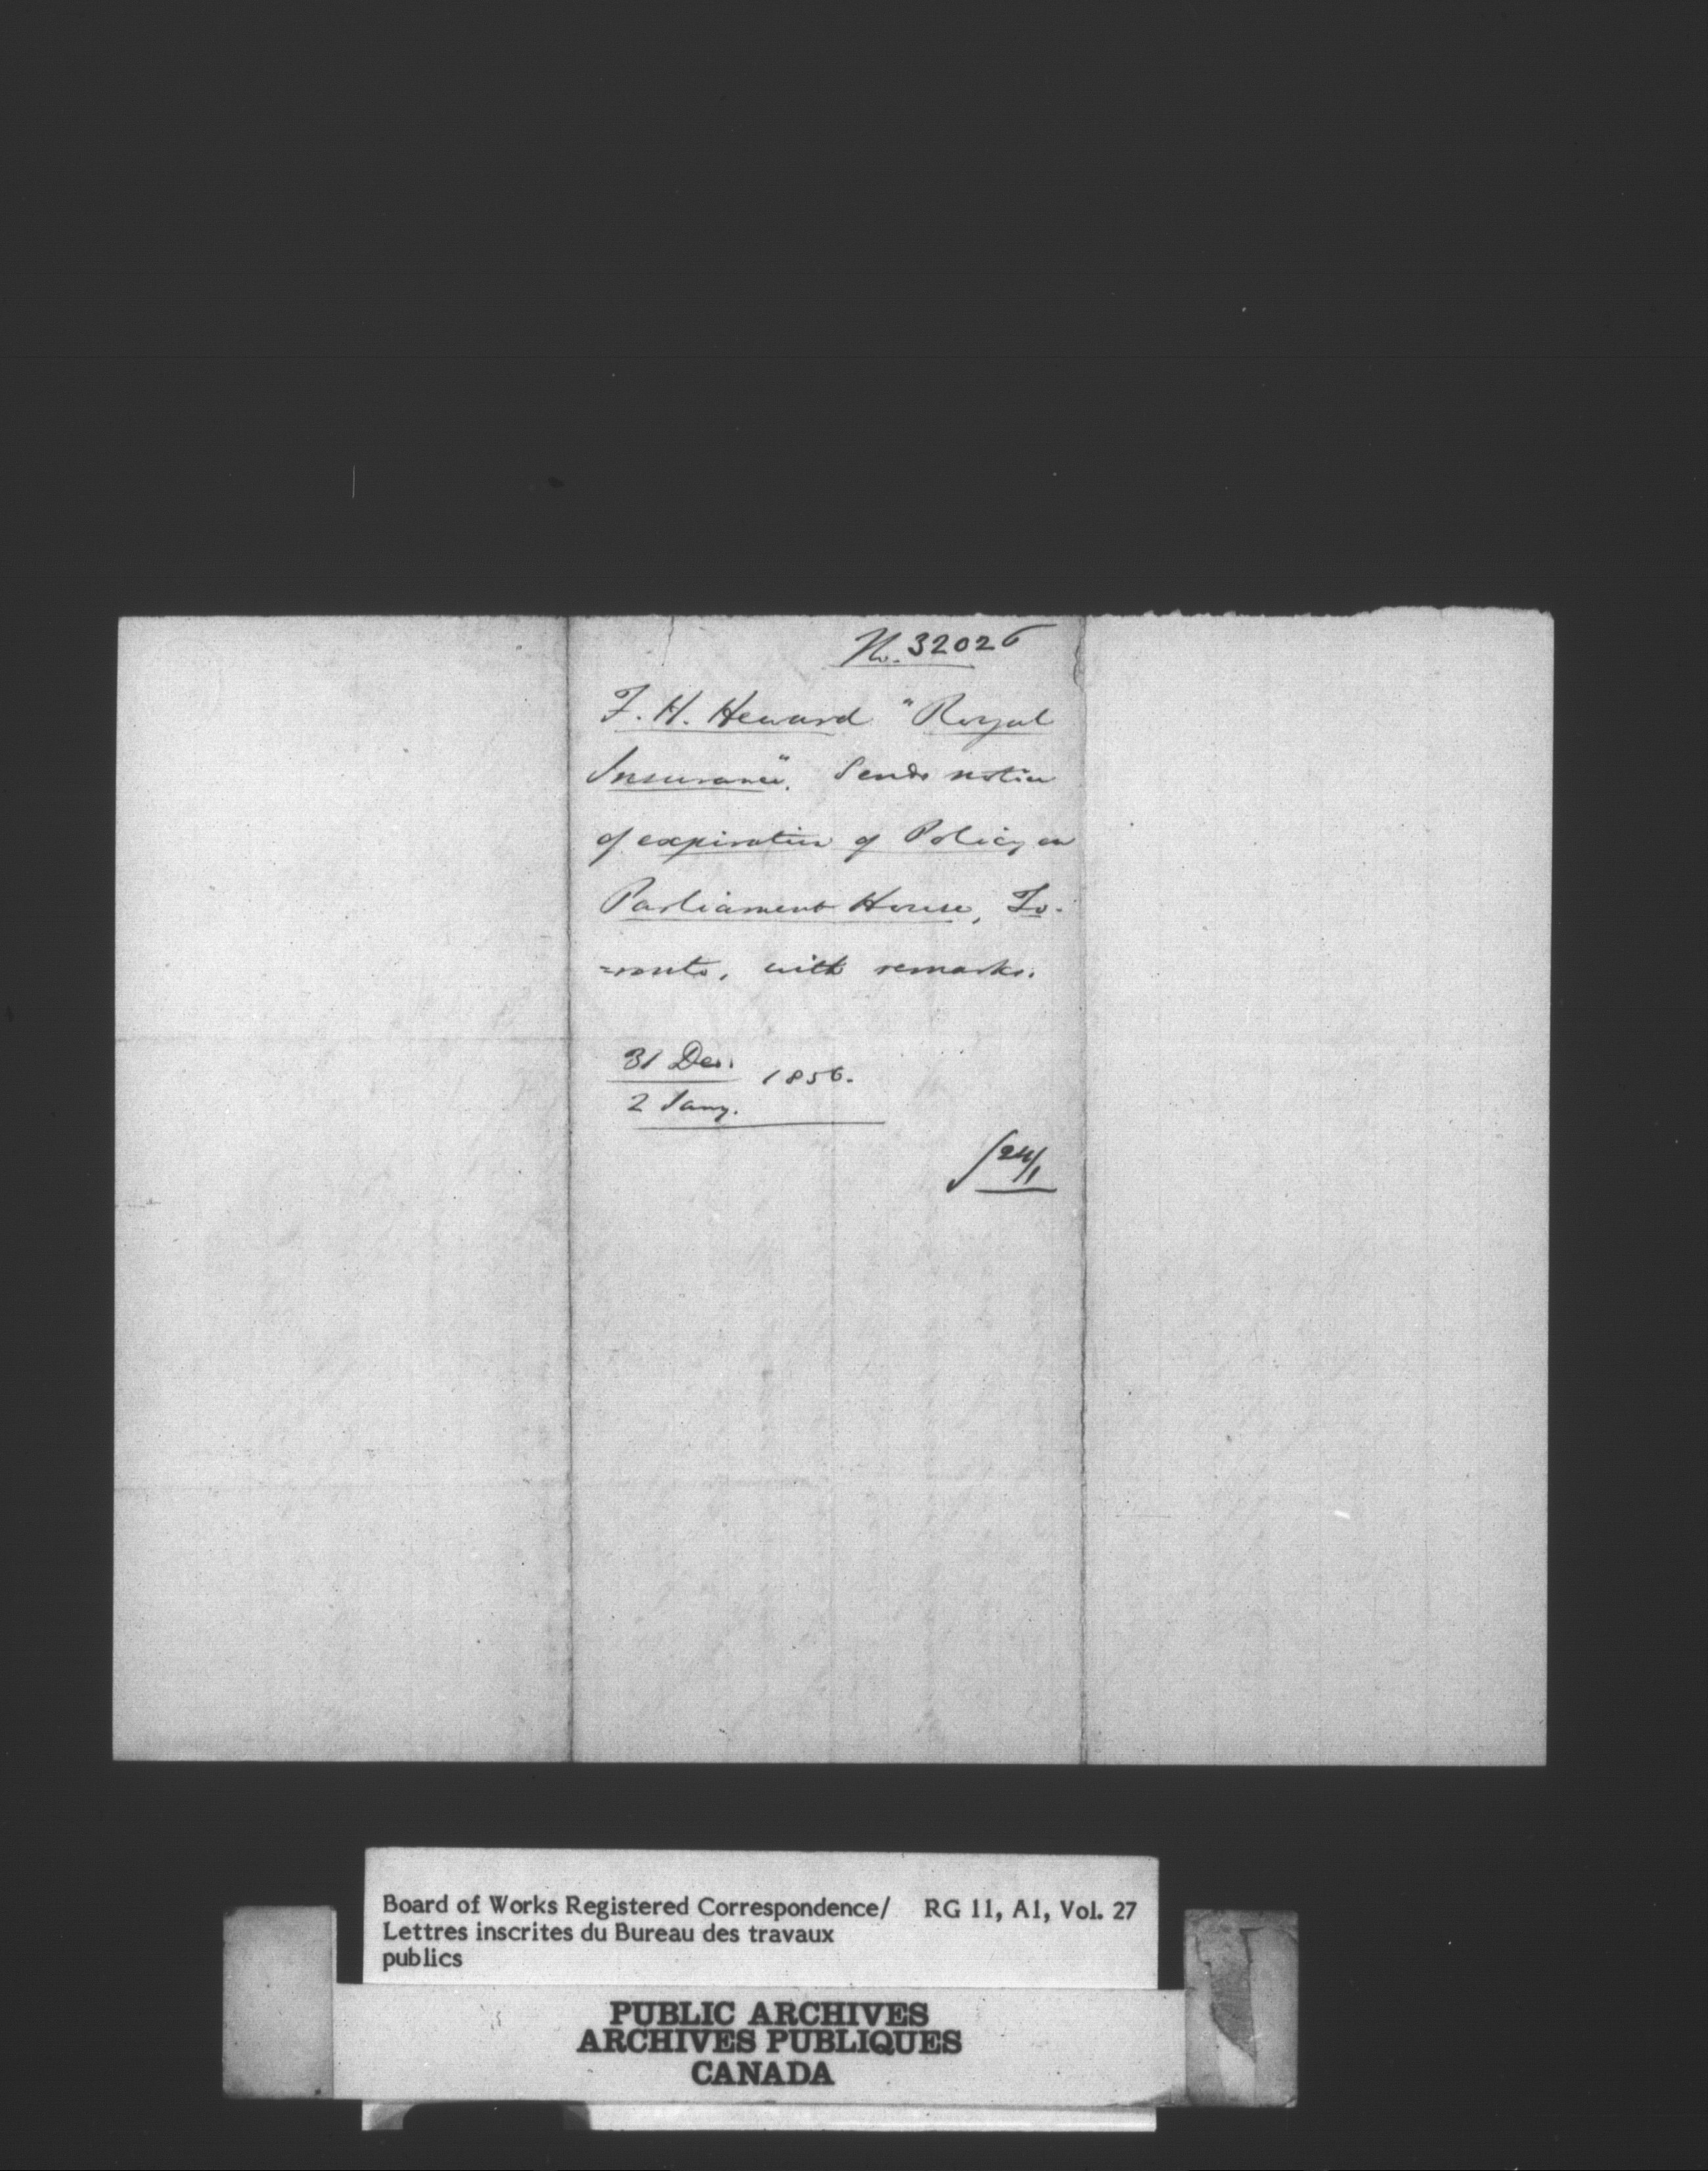 No. 32026
F. H. Heward "Royal
Insurance". Sends notice
of expiration of Policy on
Parliament House, To-
=ronto, with remarks.
31 Dec. 1856.
2 Jany.
24/1
Board of Works Registered Correspondence/ RG 11, A1, Vol. 27
Lettres inscrites du Bureau des travaux
publics
PUBLIC ARCHIVES
ARCHIVES PUBLIQUES
CANADA